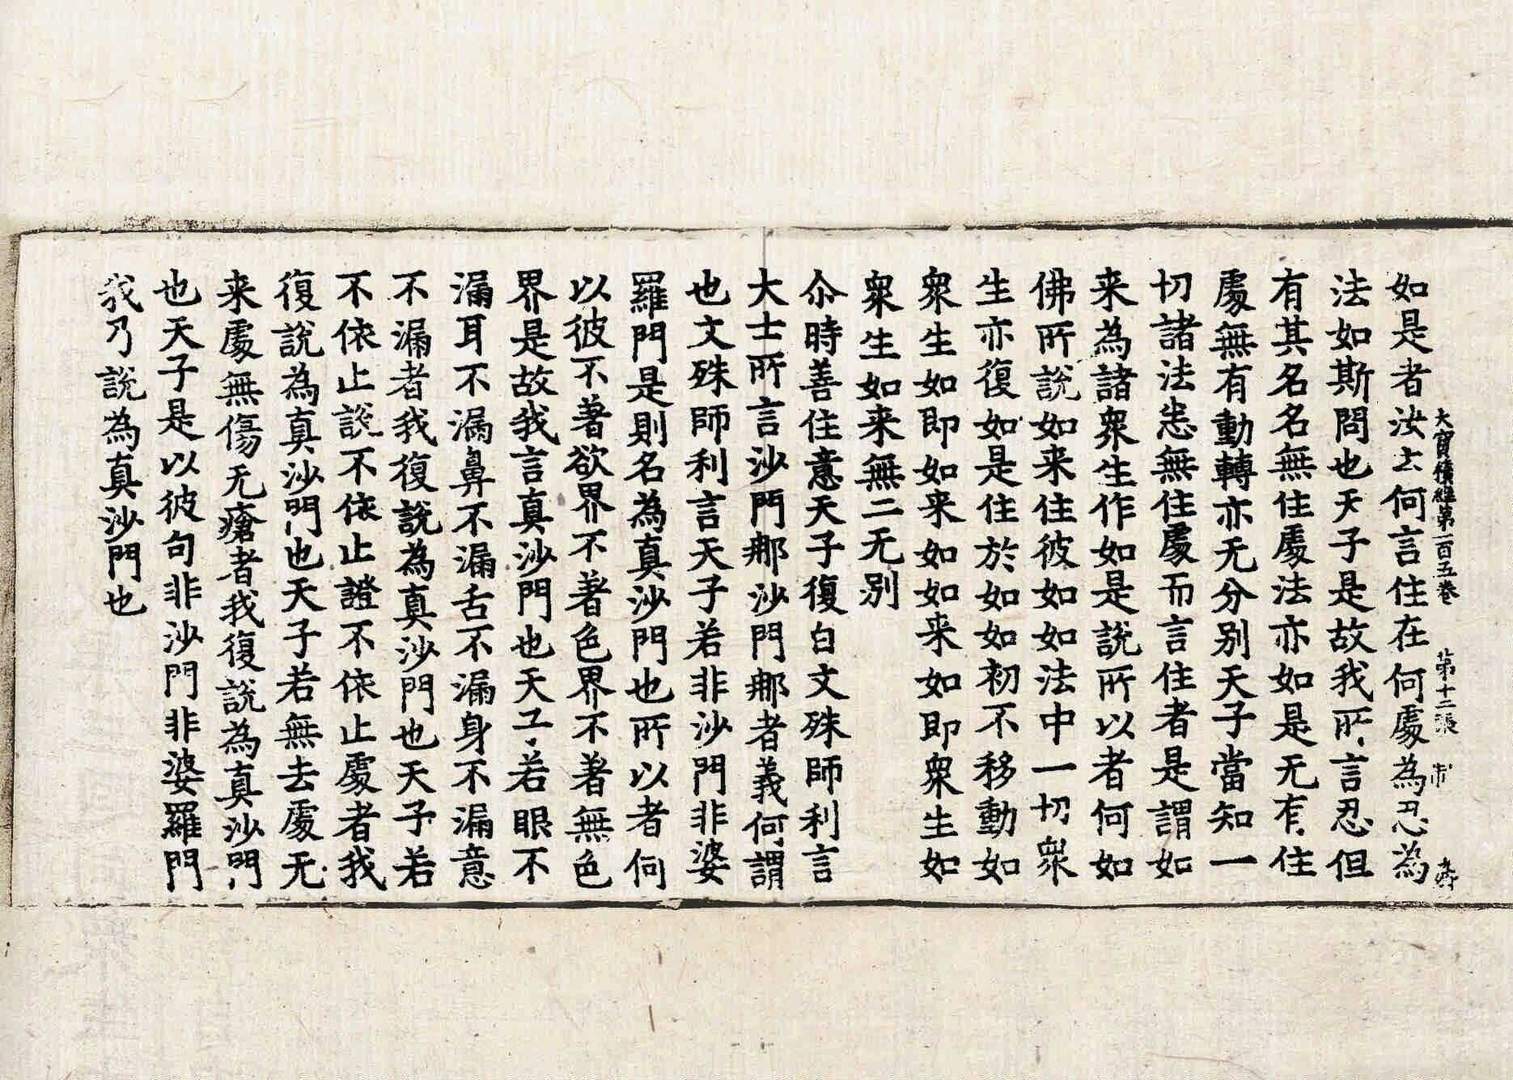 大寶積經第一百五卷 第十二張 制
如是者汝亡何言住在何處為忍為
法如斯問也天子是故我所言忍但
有其名名無住處法亦如是无有住
處無有動轉亦无分别天子當知一
切諸法悉無住處而言住者是謂如
来為諸衆生作如是說所以者何如
佛所說如来住彼如如法中一切衆
生亦復如是住於如如初不移動如
衆生如即如来如如来如即衆生如
衆生如来無二无别
尒時善住意天子復白文殊師利言
大士所言沙門那沙門那者義何謂
也文殊師利言天子若非沙門非婆
羅門是則名為真沙門也所以者何
以彼不著欲界不著色界不著無色
界是故我言真沙門也天子若眼不
漏耳不漏鼻不漏舌不漏身不漏意
不漏者我復說為真沙門也天子若
不依止說不依止證不依止處者我
復說為真沙門也天子若無去處无
来處無傷无瘡者我復說為真沙門
也天子是以彼句非沙門非婆羅門
我乃說為真沙門也